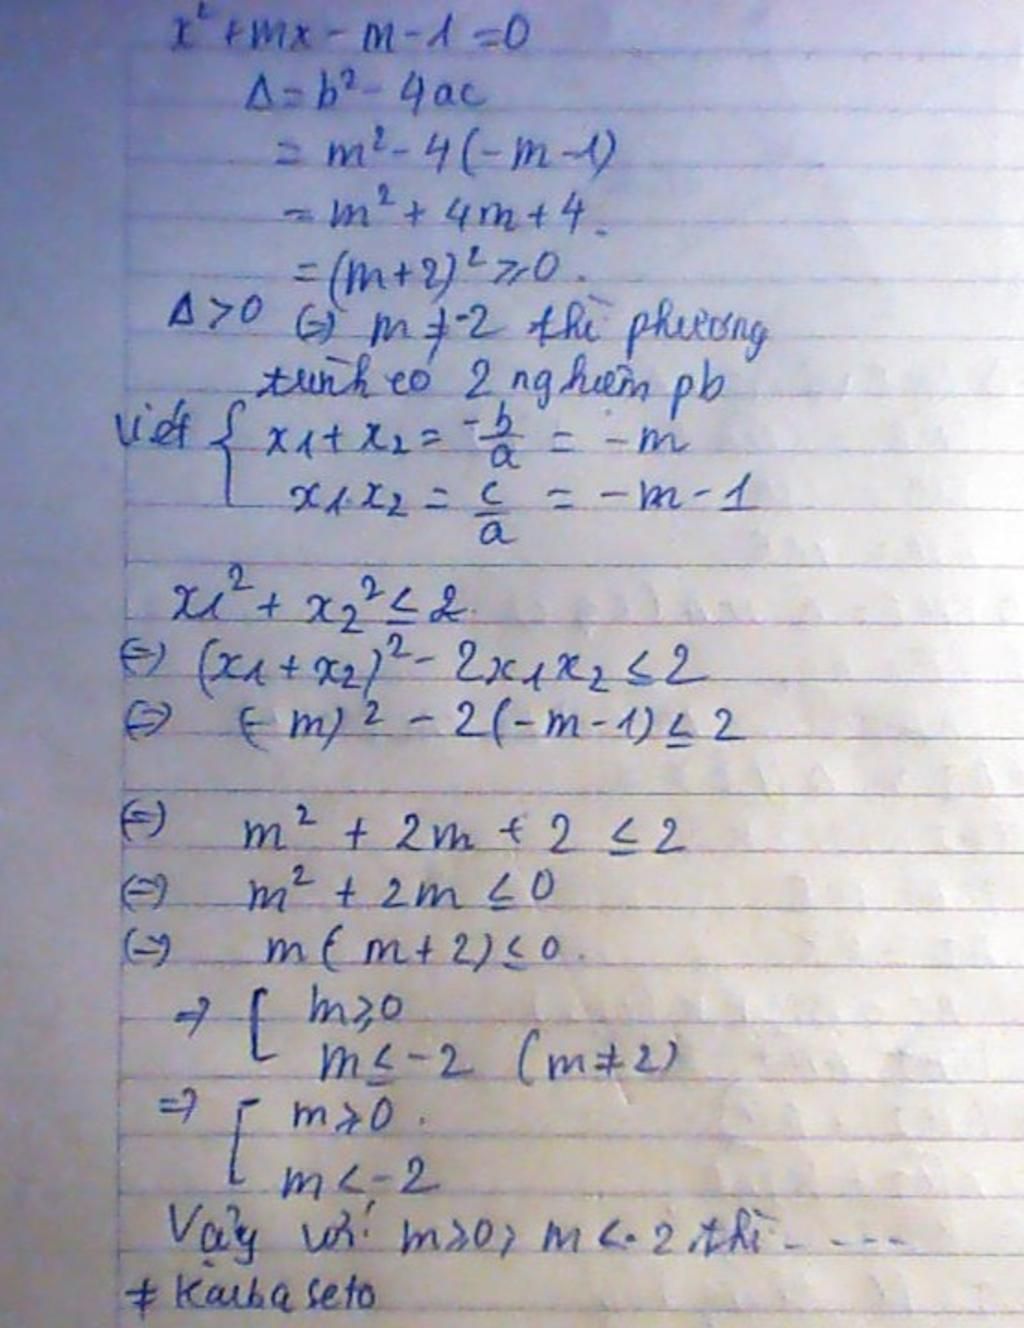 x² + mx - m - 1 = 0
Δ = b² - 4ac
= m² - 4(-m-1)
= m² + 4m + 4.
= (m+2)² ≥ 0.
Δ > 0 (=) m ≠ -2 thì phương
trình có 2 nghiệm pb
Viét { x1 + x2 = -b/a = -m
x1.x2 = c/a = -m - 1
x1² + x2² ≤ 2.
(=) (x1 + x2)² - 2x1x2 ≤ 2
(=) (-m)² - 2(-m-1) ≤ 2
(=) m² + 2m + 2 ≤ 2
(=) m² + 2m ≤ 0
(=) m(m+2) ≤ 0.
=> [ m ≥ 0
m ≤ -2 (m ≠ 2)
=> [ m ≥ 0.
m < -2
Vậy với m ≥ 0, m < -2 thì - ----
# Kaiba seto